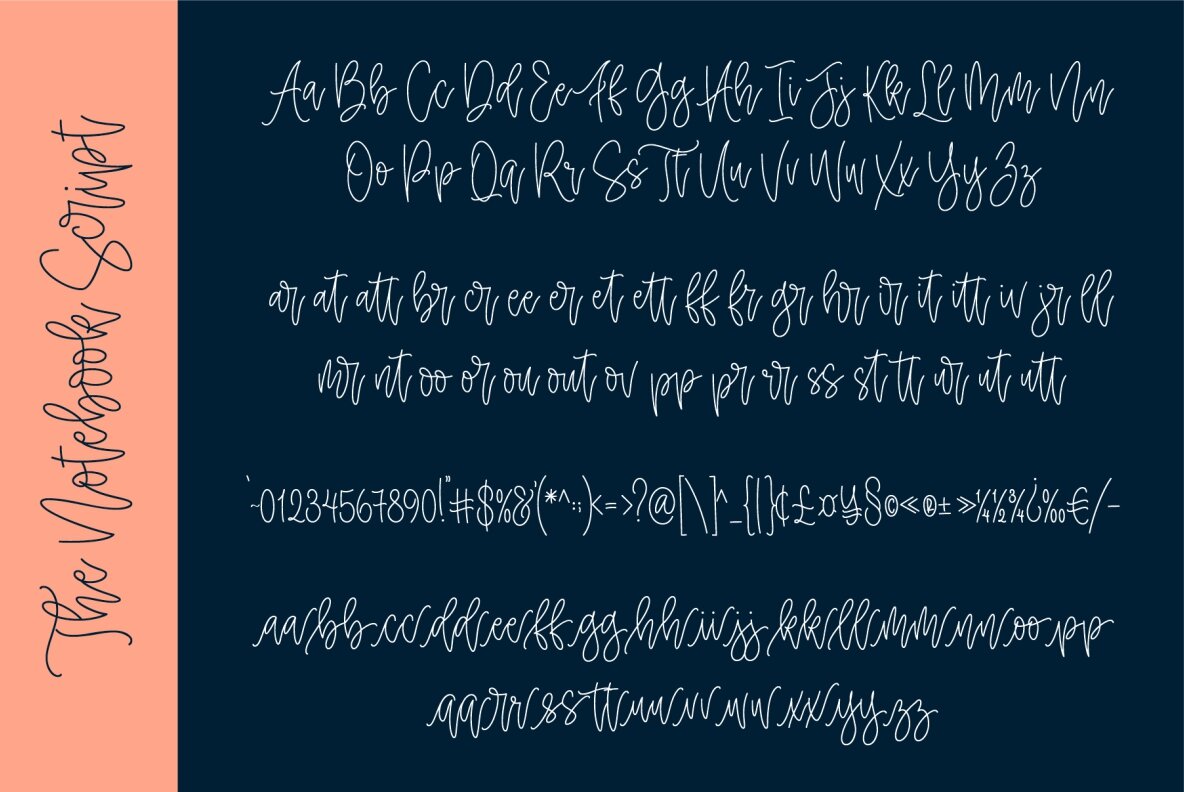 The Notebook Script
Aa Bb Cc Dd Ee Ff Gg Hh Ii Jj Kk Ll Mm Nn
Oo Pp Qq Rr Ss Tt Uu Vv Ww Xx Yy Zz
ar at att br cr ee er et ett ff fr gr hr ir it itt iv jr ll
mr nt oo or ou out ov pp pr rr ss st tt ur ut utt
`~01234567890!"#$%&'(*^:;)<=>?@[\]^_{|}¢£¤¥§©«®±»¼½¾¿‰€/–
aa bb cc dd ee ff gg hh ii jj kk ll mm nn oo pp
qq rr ss tt uu vv ww xx yy zz